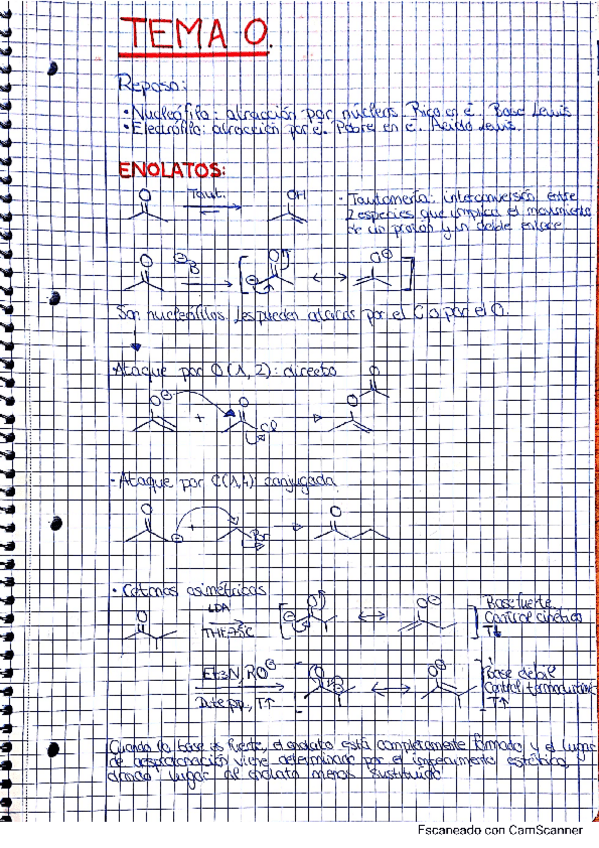 TEMA 0.
Repaso:
· Nucleófilo: atracción por núcleos. Rico en e⁻. Base Lewis
· Electrófilo: atracción por e⁻. Pobre en e⁻. Ácido Lewis.
ENOLATOS:
O Taut. OH
· Tautomería: interconversión entre
2 especies que implica el movimiento
de un protón y un doble enlace
O ⊖B ⊖ O O⊖
Son nucleófilos. Les pueden atacar por el C o por el O.
· Ataque por O (1,2): directo
O⊖ + O Cl O O
· Ataque por C (1,4) conjugada
O ⊖ + Br O
· Cetonas asimétricas
O LDA ⊖ O O⊖ Base fuerte
THF, -78ºC Control cinético
T↓
Et₃N, RO⊖ O ⊖ O⊖ Base débil
T↑ Control termodinámico
T↑
Cuando la base es fuerte, el enolato está completamente formado y el lugar
de desprotonación viene determinado por el impedimento estérico,
dando lugar al enolato menos sustituido
Escaneado con CamScanner